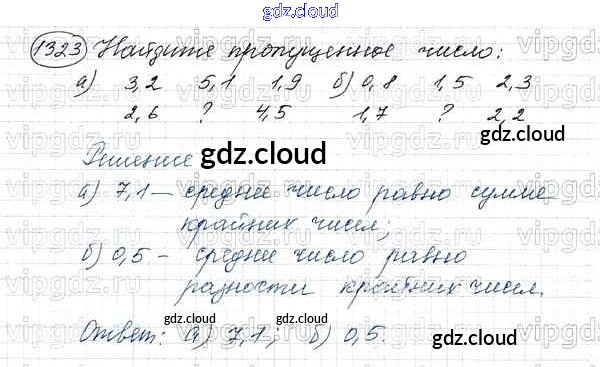 gdz.cloud
1323 Найдите пропущенное число:
а) 3,2 5,1 1,9 б) 0,8 1,5 2,3
2,6 ? 4,5 1,7 ? 2,2
gdz.cloud gdz.cloud
Решение gdz.cloud
а) 7,1 – среднее число равно сумме
крайних чисел;
б) 0,5 – среднее число равно
разности крайних чисел.
gdz.cloud gdz.cloud
Ответ: а) 7,1; б) 0,5.
gdz.cloud